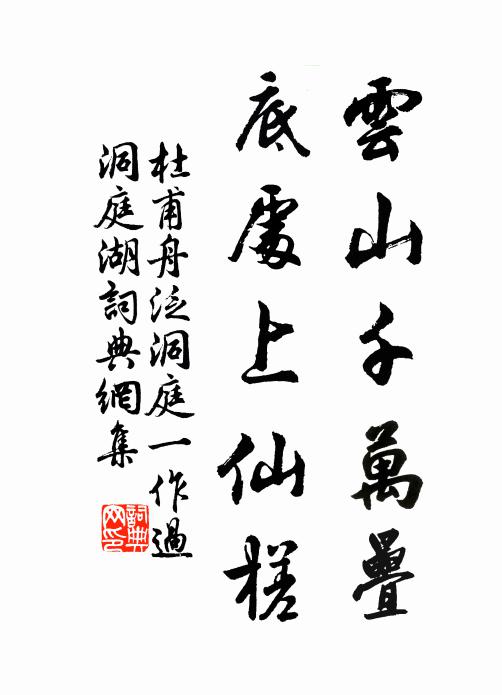 雲山千萬疊
底處上仙槎
杜甫舟泛洞庭一作過
洞庭湖詞典網集
詞典
网印